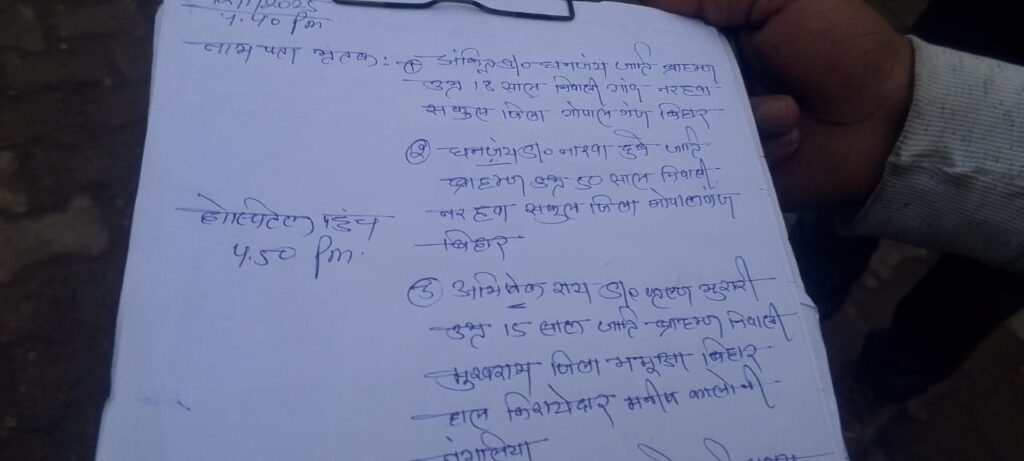 /2025
4.40 pm
नाम पता मृतक : - ① अंकित S/० धनन्जय जाति ब्राहमण
उम्र 18 साल निवासी गांव नरहवा
सकुल जिला गोपाल गंज बिहार
② धनन्जय S/० नारवा दुबे जाति
ब्राहमण उम्र 50 साल निवासी
नरहवा सकुल जिला गोपालगंज
बिहार
होस्पिटल पहुंच
4.50 pm.
③ अभिषेक राय S/० कृष्ण मुरारी
उम्र 15 साल जाति ब्राहमण निवासी
जिला बिहार
हाल किरायेदार कालोनी